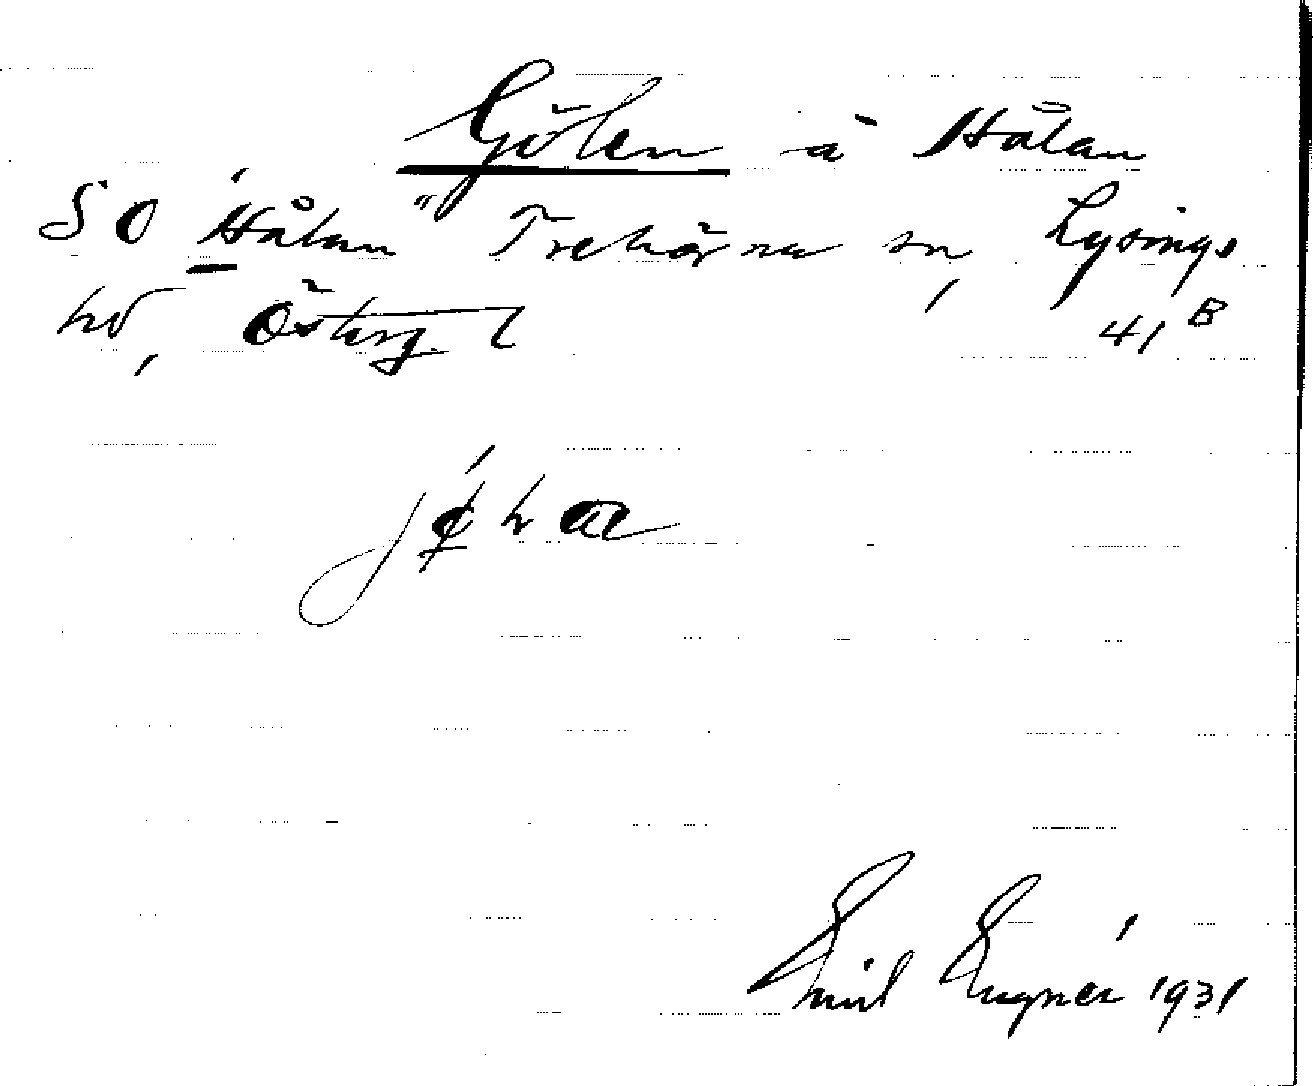 Gölen å Hålan
SO Hålan" Trehörna sn, Lysings
hd, Österg. l 41 B
Emil Eugnér 1931